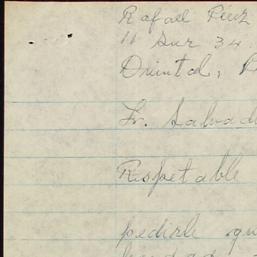 Rafael Ruiz
11 Sur 34
Oriental, P
Sr. Salvad
Respetable
pedirle qu